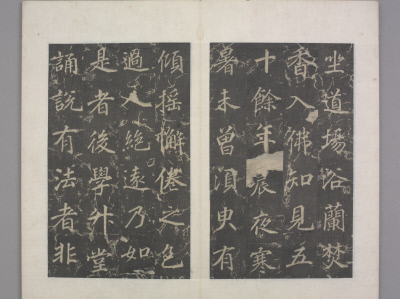 坐道場浴蘭焚
香入佛知見五
十餘年晨夜寒
暑未曾須臾有
傾搖懈倦之色
過人絕遠乃如
是者後學升堂
誦說有法者非